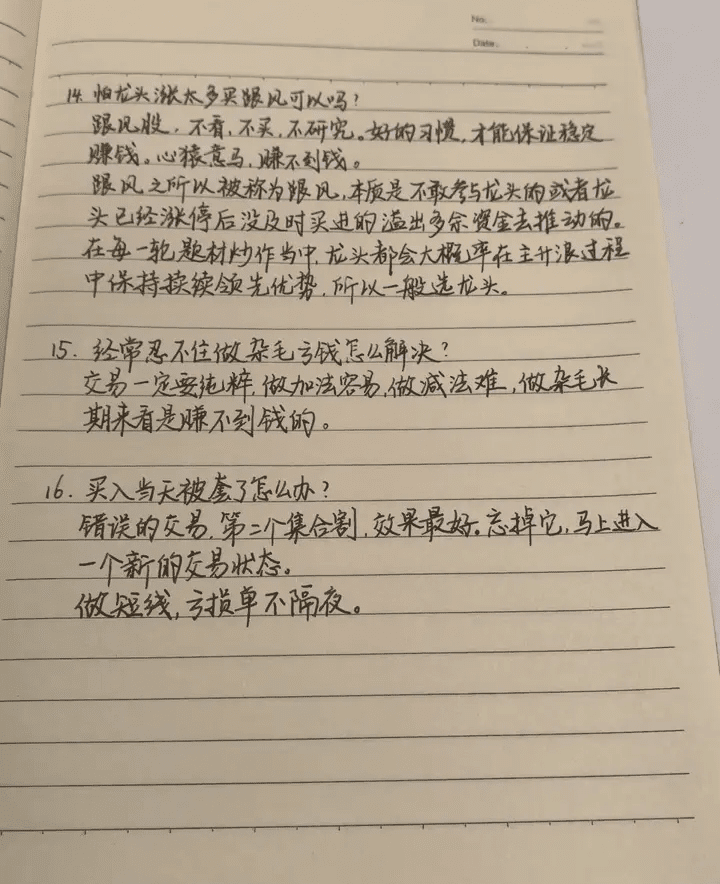 No.
Date.
14. 怕龙头涨太多买跟风可以吗?
跟风股,不看,不买,不研究。好的习惯,才能保证稳定
赚钱。心猿意马,赚不到钱。
跟风之所以被称为跟风,本质是不敢参与龙头的或者龙
头已经涨停后没及时买进的溢出多余资金去推动的。
在每一轮题材炒作当中,龙头都会大概率在主升浪过程
中保持持续领先优势,所以一般选龙头。
15. 经常忍不住做杂毛亏钱怎么解决?
交易一定要纯粹,做加法容易,做减法难,做杂毛长
期来看是赚不到钱的。
16. 买入当天被套了怎么办?
错误的交易,第二个集合割,效果最好。忘掉它,马上进入
一个新的交易状态。
做短线,亏损单不隔夜。